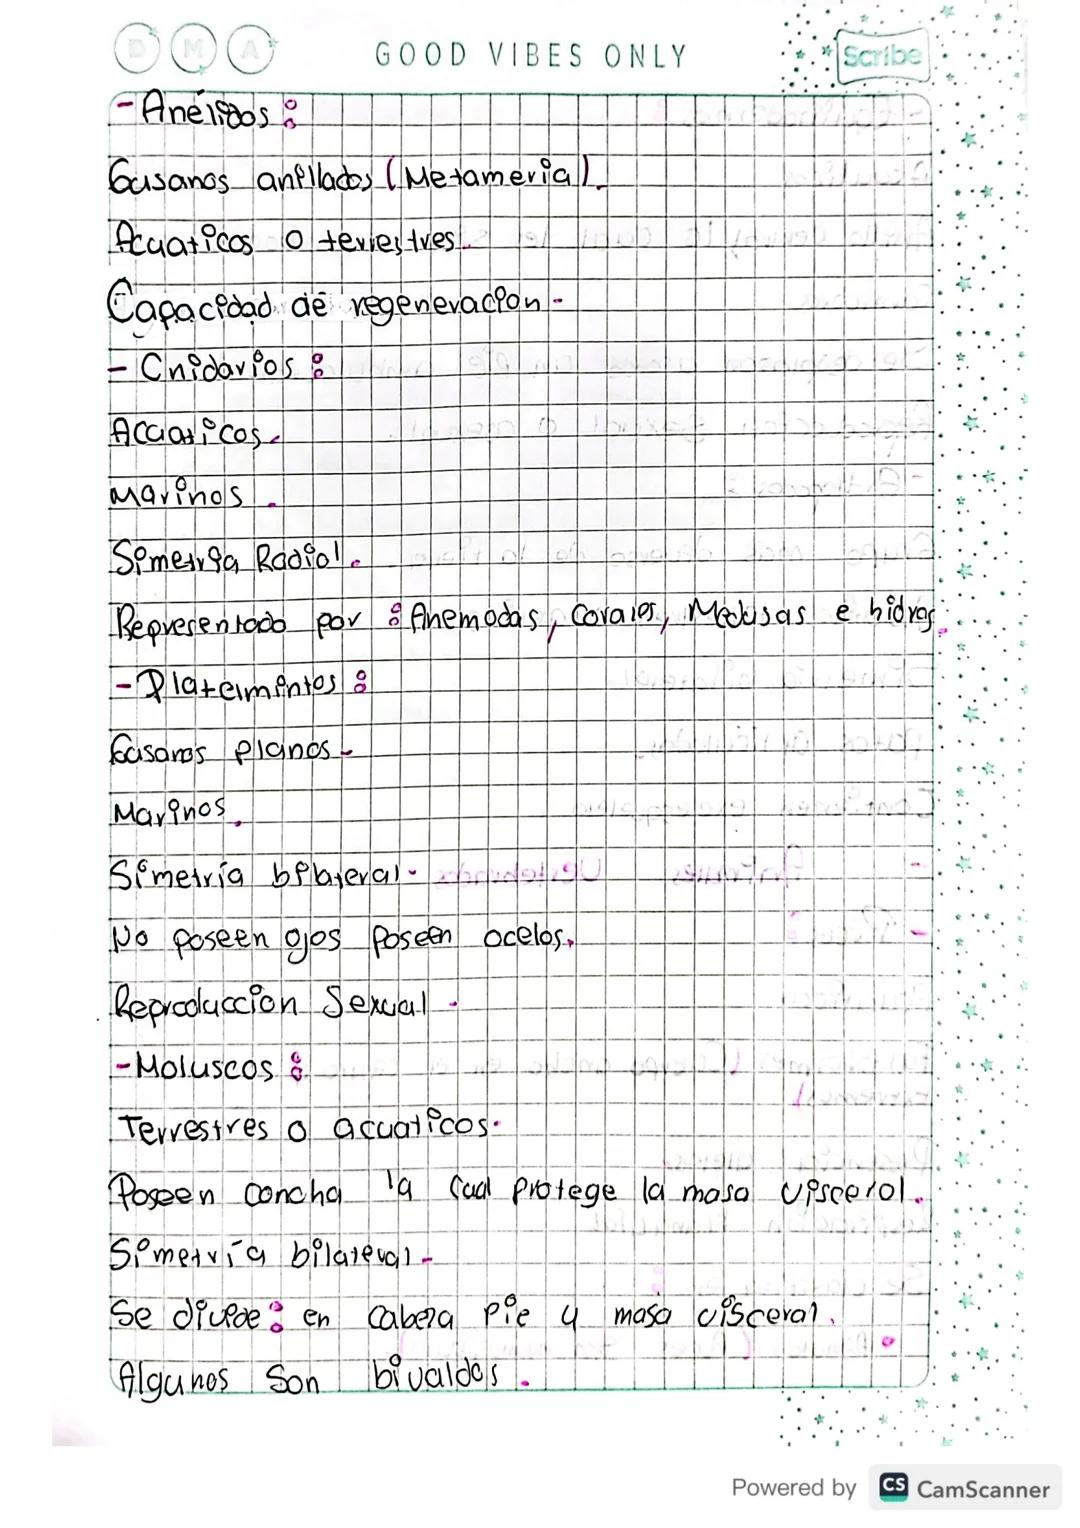 D M A GOOD VIBES ONLY Scribe
- Anélidos :
Gusanos anillados (Metameria).
Acuaticos o terrestres.
Capacidad de regeneracion -
- Cnidarios :
Acuaticos.
Marinos.
Simetria Radial.
Representado por : Anemodas, Corales, Medusas e hidras.
- Platelmintos :
Gusanos planos -
Marinos.
Simetría bilateral -
No poseen ojos poseen ocelos.
Reproduccion Sexual -
- Moluscos :
Terrestres o acuaticos.
Poseen Concha la Cual protege la masa visceral.
Simetría bilateral -
Se divide : en Cabeza Pie y masa visceral.
Algunos Son bivaldos.
Powered by CS CamScanner